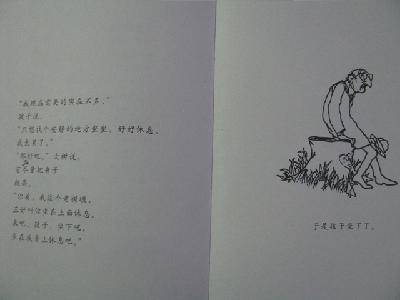 “我现在需要的实在不多，”
孩子说，
“只想找个安静的地方坐坐，好好休息。
我太累了。”
“那好吧。”大树说，
它尽量把身子
挺高，
“你看，我这个老树墩，
正好叫你坐在上面休息。
来吧，孩子，坐下吧，
坐在我身上休息吧。”
于是孩子坐下了。